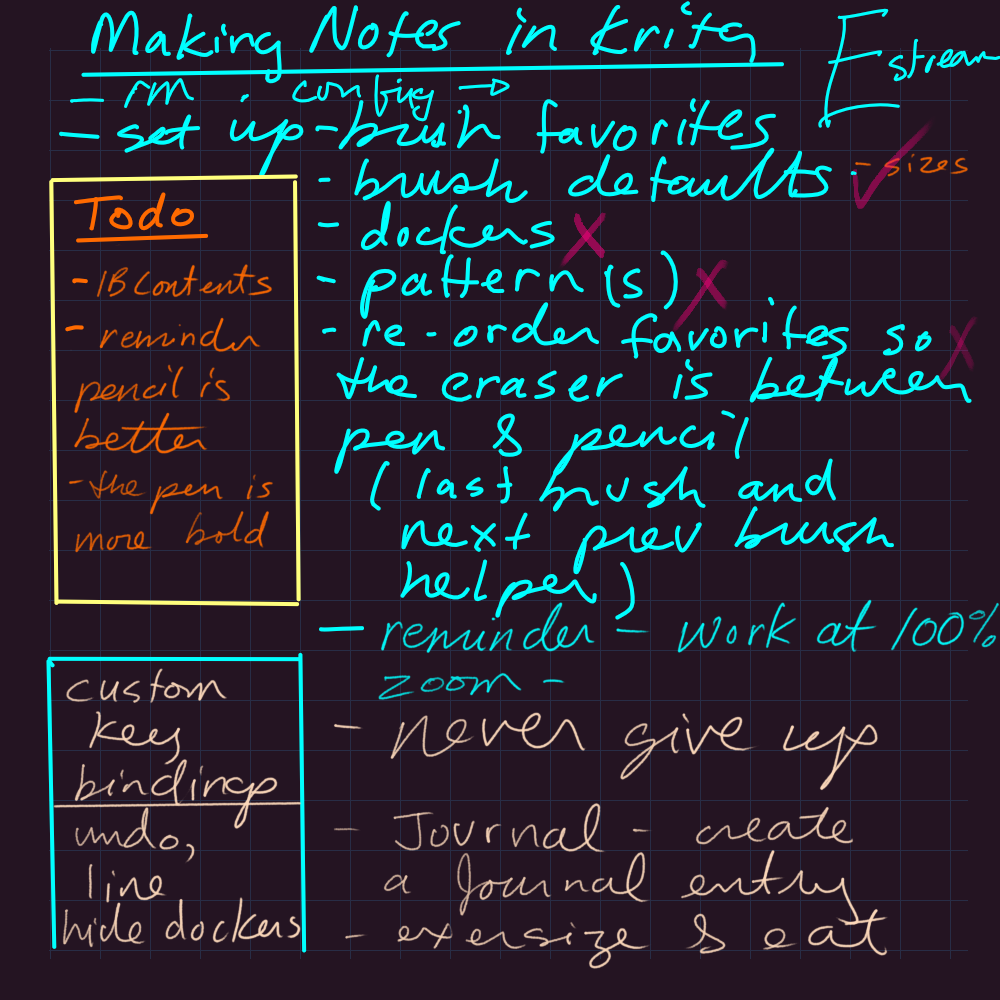 Making Notes in Krita
E stream
- rm config →
- set up - brush favorites
- brush defaults - sizes
- dockers
- pattern(s)
- re-order favorites so
the eraser is between
pen & pencil
(last brush and
next prev brush
helper)
- reminder - work at 100%
zoom -
- never give up
- Journal - create
a Journal entry
- exersize & eat
Todo
- IB Contents
- reminder
pencil is
better
- the pen is
more bold
custom
key
bindings
undo,
line
hide dockers